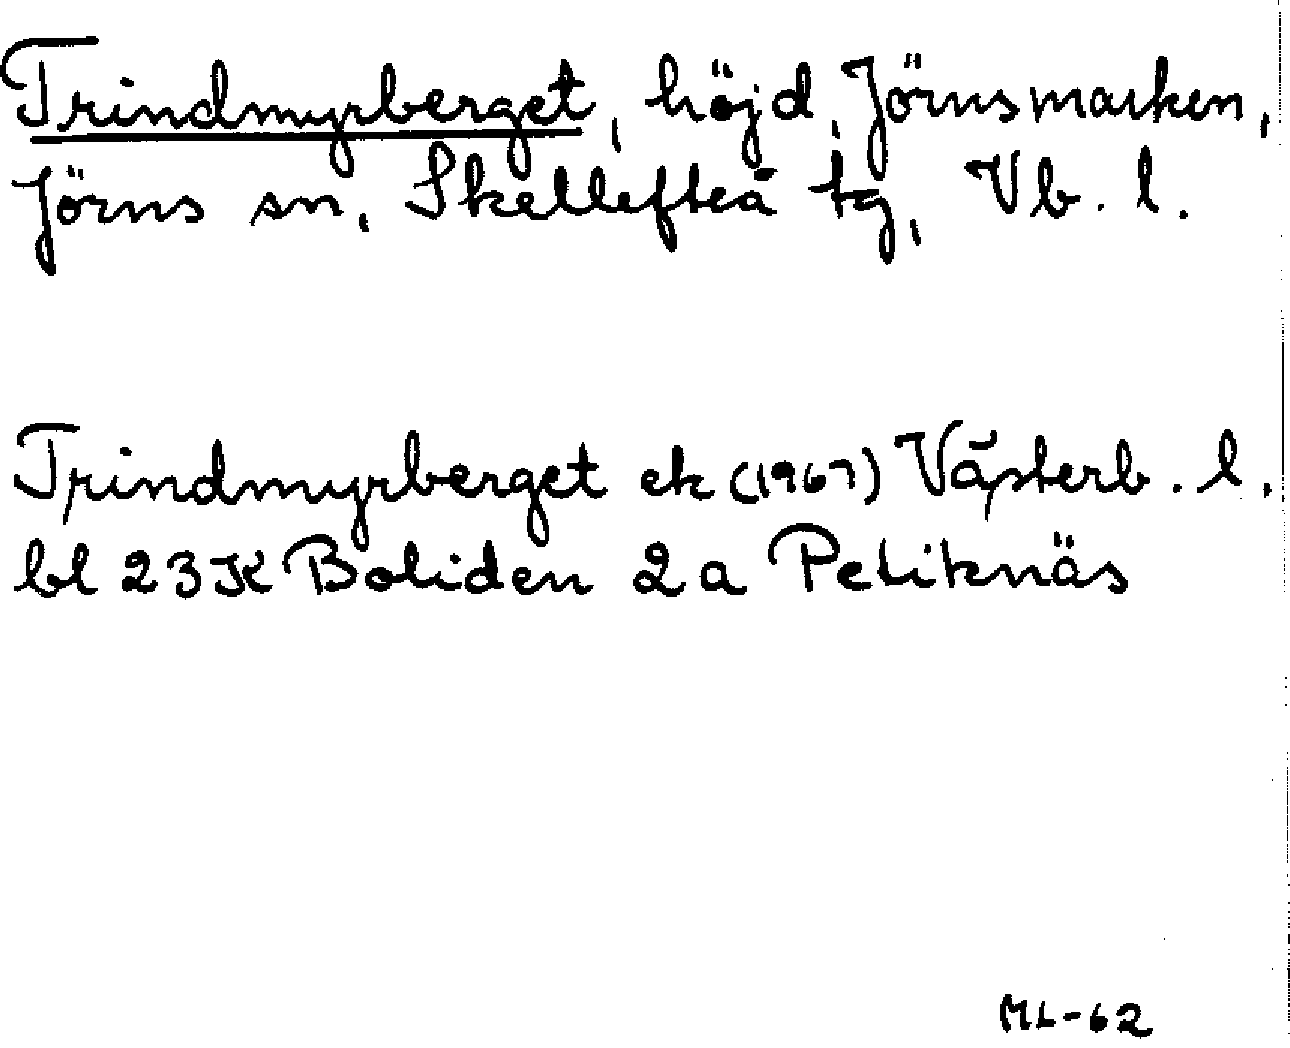 Trindmyrberget, höjd, Jörnsmarken,
Jörns sn, Skellefteå tg, Vb. l.
Trindmyrberget ek (1967) Västerb. l.
bl 23K Boliden 2a Petiknäs
ML-62